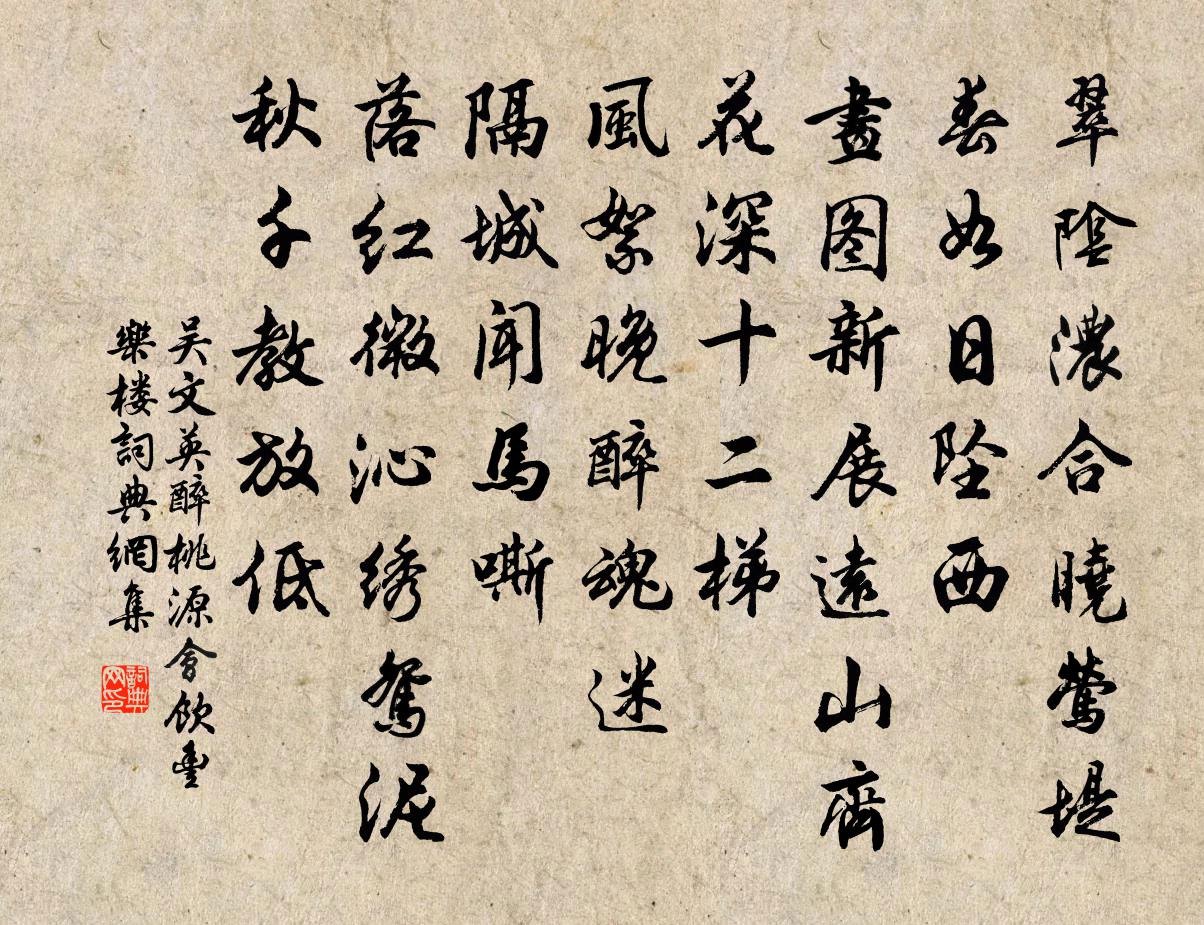 翠陰濃合曉鶯堤
春如日坠西
畫图新展遠山齊
花深十二梯
風絮晚醉魂迷
隔城聞馬嘶
落红微沁绣鴛泥
秋千教放低
吴文英醉桃源會飲豐
樂楼詞典網集
詞典
网印